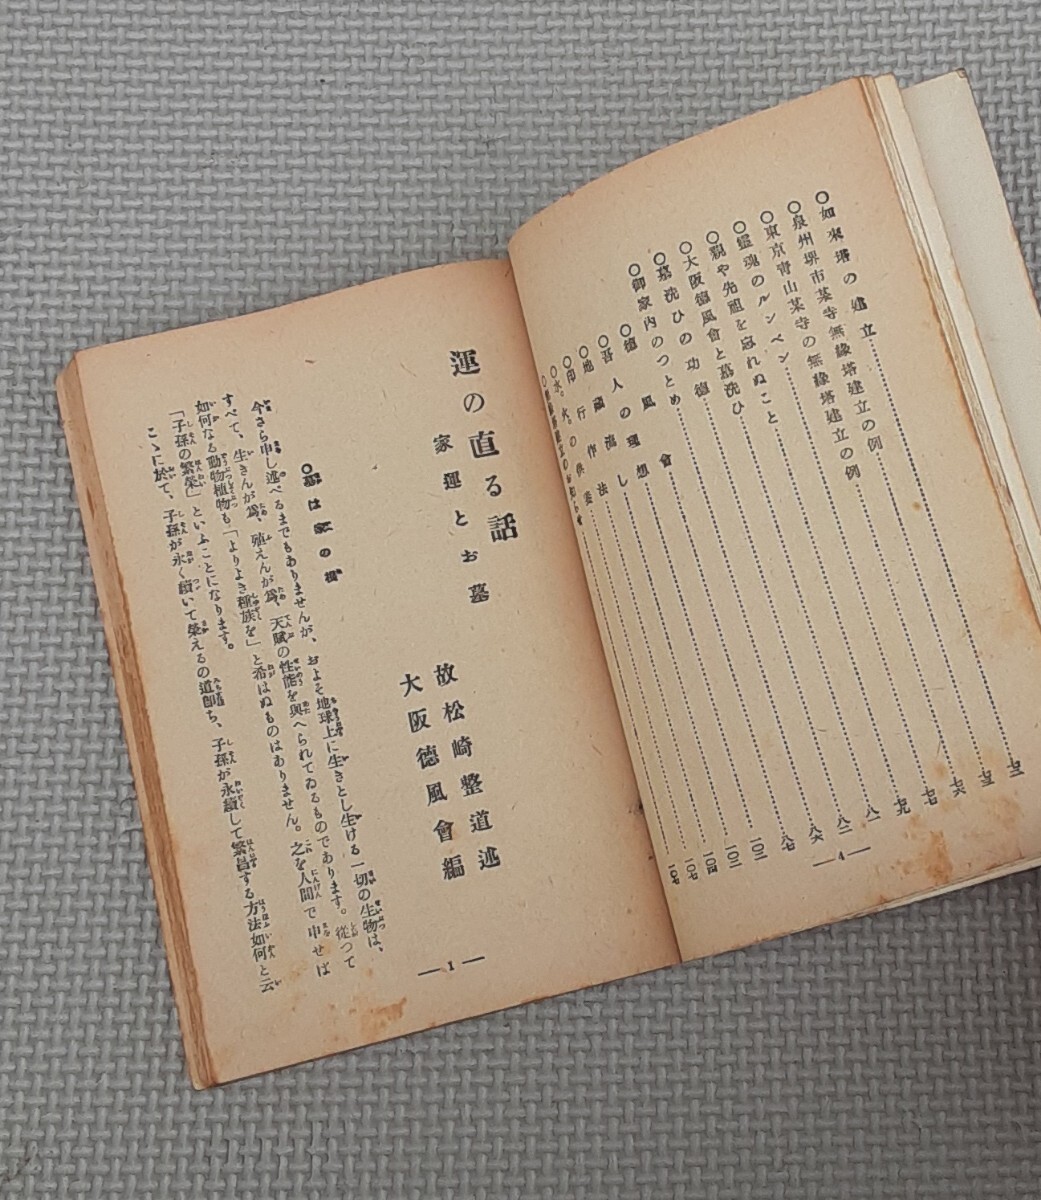 ○如來塔の建立……七三
○泉州堺市某寺無緣塔建立の例……七五
○東京靑山某寺の無緣塔建立の例……七六
○靈魂のルンペン……七七
○親や先祖を忘れぬこと……七九
○大阪德風會と墓洗ひ……八一
○墓洗ひの功德……八二
○御家內のつとめ……八六
○德風會……八七
○吾人の理想……一〇一
○地藏流し……一〇二
○印行作法……一〇四
○水。火。の供養……一〇七
一〇七
—4—
運の直る話
家運とお墓
故松崎整道述
大阪德風會編
○墓は家の根
今さら申し述べるまでもありませんが、およそ地球上に生きとし生ける一切の生物は、
すべて、生きんが爲、殖えんが爲、天賦の性能を與へられてゐるものであります。從つて
如何なる動物植物も「よりよき種族を」と希はぬものはありません。之を人間で申せば
「子孫の繁榮」といふことになります。
こゝに於て、子孫が永く續いて榮えるの道卽ち、子孫が永續して繁昌する方法如何と云
—1—